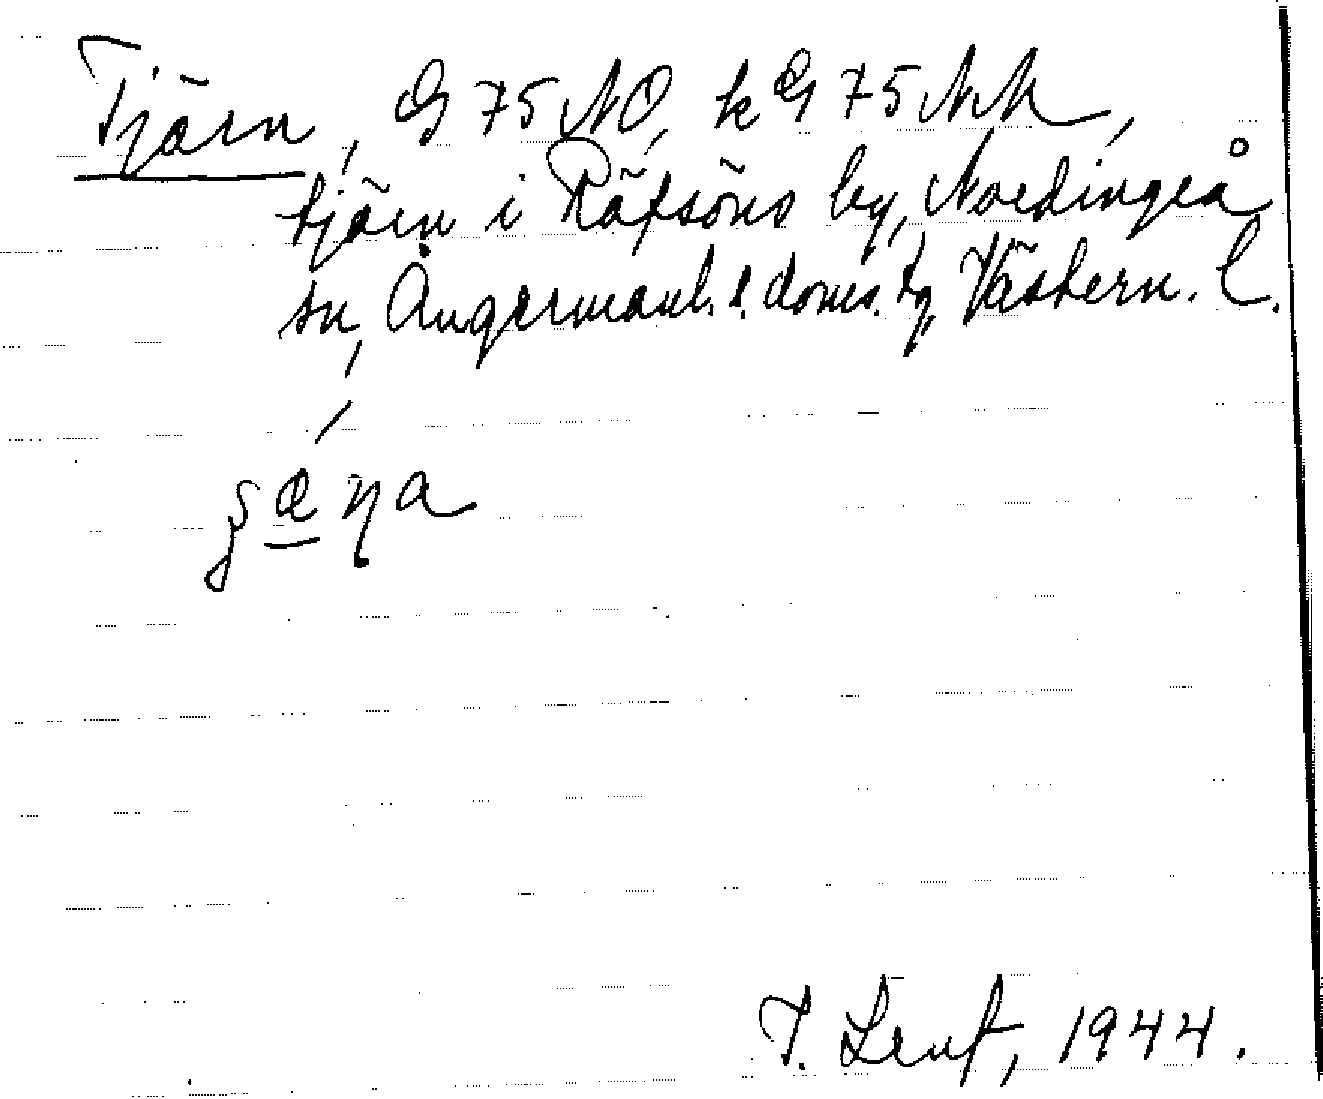 Tjärn, G 75 NO, k G 75 NM,
tjärn i Räfsöns by, Nordingrå
sn, Ångermanl. s. doms. Västern. l.
T. Lenf, 1944.